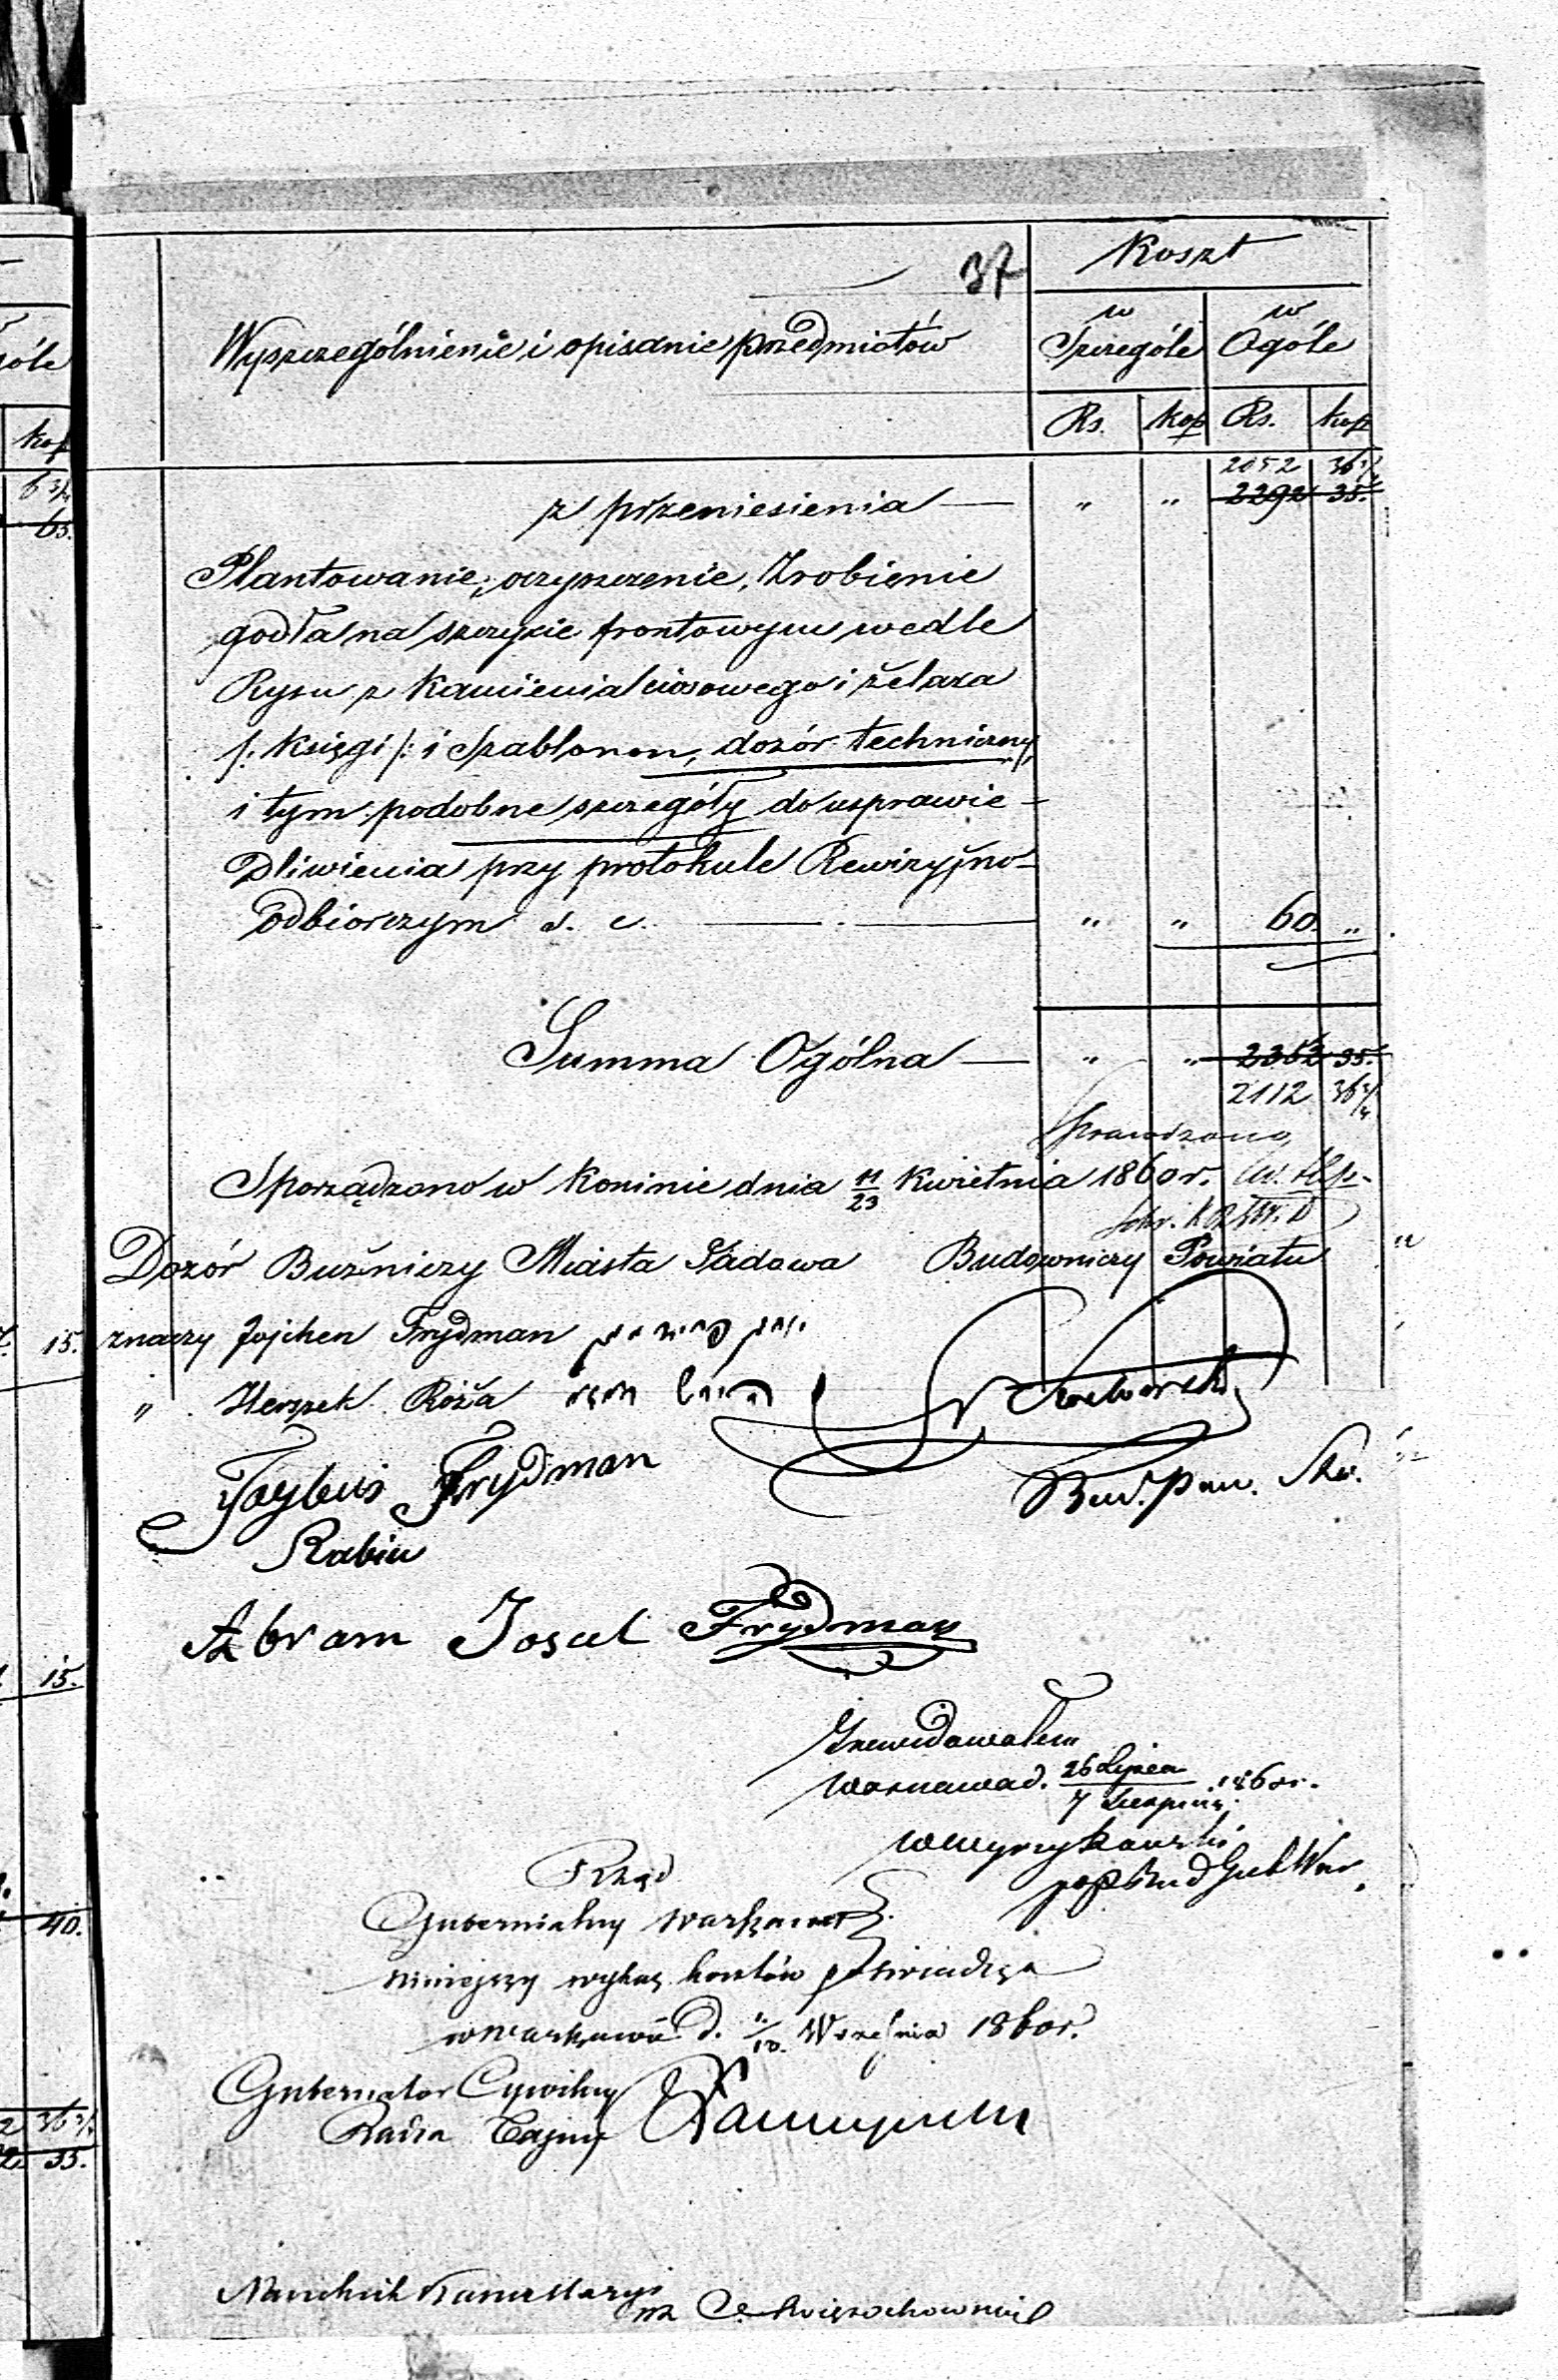 37
Koszt
Wyszczególnienie i opisanie przedmiotów
w Szczególe
w Ogóle
Rs. kop Rs. kop
2052 36 3/4
z przeniesienia — " " 2292 35.
Plantowanie, oczyszczenie, Zrobienie
godła na szczycie frontowym wedle
Rysu z kamienia ciosowego i żelaza
/: Księgi /: i Szablonem, dozór techniczny
i tym podobne szczegóły do usprawie-
dliwienia przy protokule Rewizyjno-
odbiorczym s. c. — " " 60 "
Summa Ogólna — " " 2352 35.
2112 36 3/4
Sprawdzono
Sporządzono w Koninie dnia 11/23 Kwietnia 1860 r.
Dozór Bużniczy Miasta Sadowa Budowniczy Powiatu
znaczy Jojchen Frydman
" Herszek Róża
Faybuś Frydman
Rabin
Bud. Pow.
Abram Josel Frydman
Zrewidowałem
Warszawa d. 26 Lipca / 7 Sierpnia 1860 r.
Rząd
Gubernialny Warszawski
niniejszy wykaz kosztów poświadcza
w Warszawie d. Września 1860 r.
Gubernator Cywilny
Radca Tajny
Naczelnik Kancellaryi
óle
kop
6 3/4
65.
15.
15.
40.
2 36 3/4
35.